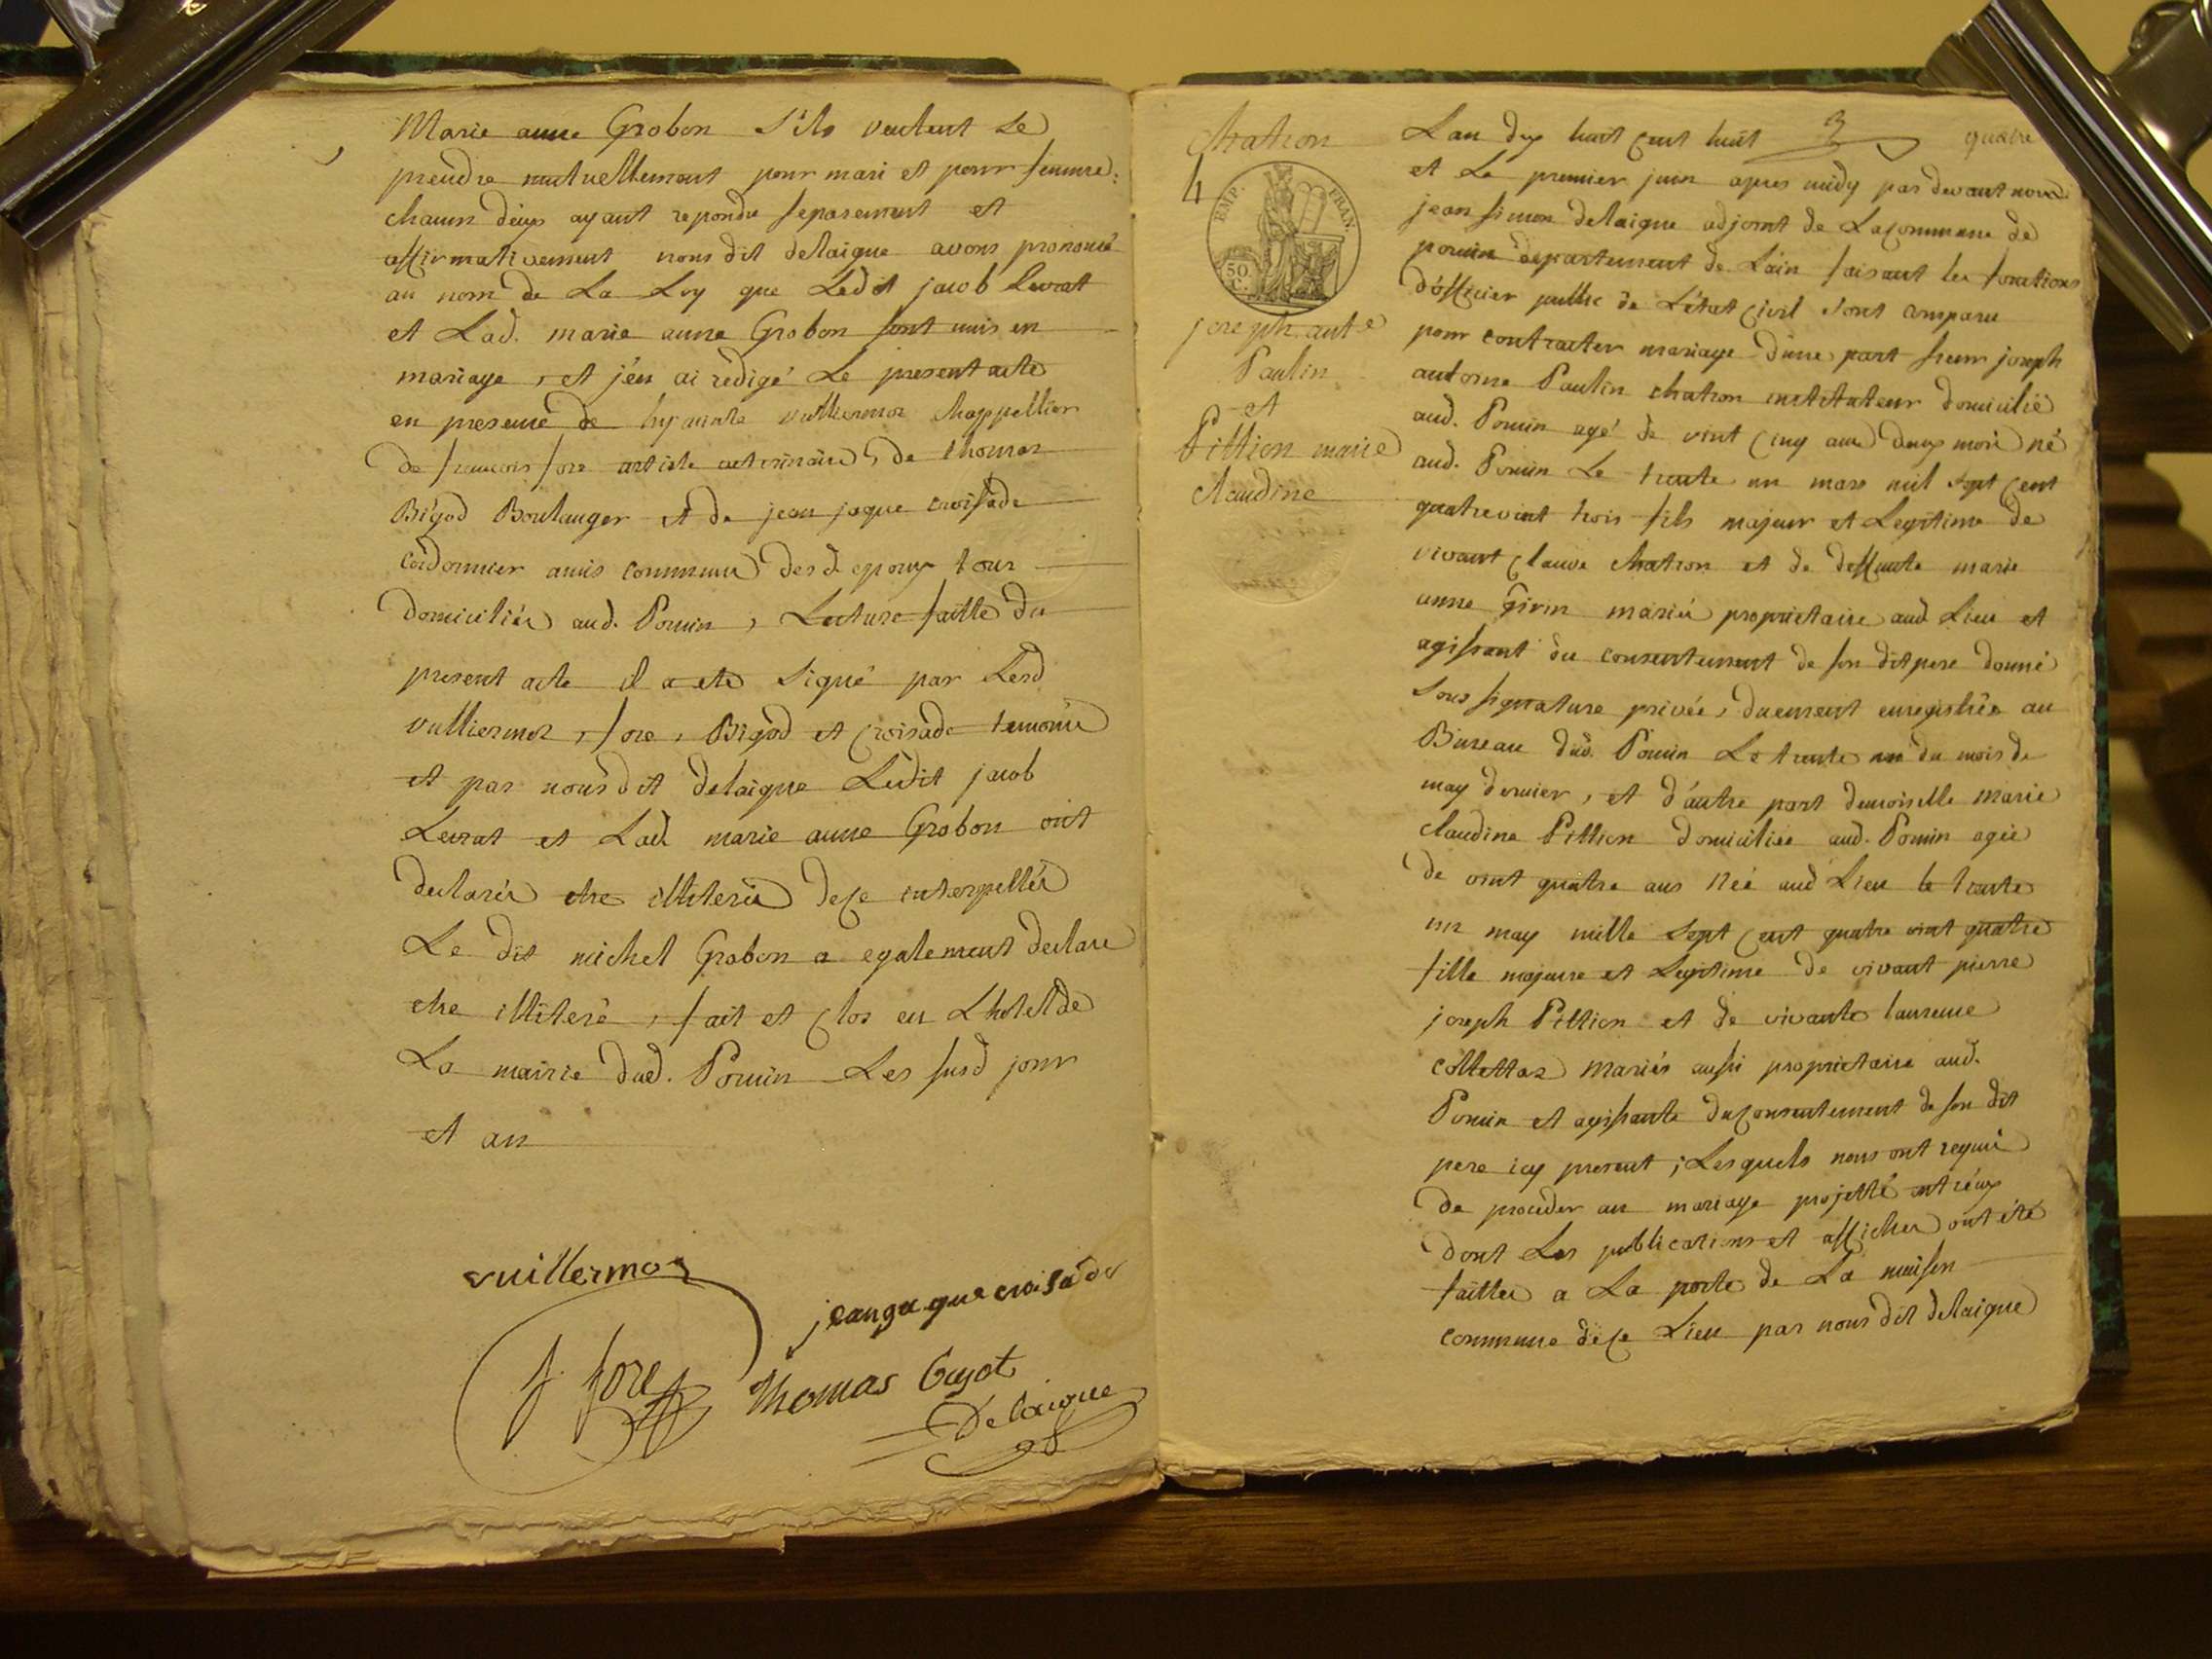 Marie anne Grobon S'ils veulent Se
prendre mutuellement pour mari et pour femme;
chacun d'eux ayant repondu separement et
affirmativement nous dit delaigue avons prononcé
au nom de La Loy que Ledit jacob Levrat
et Lad. marie anne Grobon sont unis en
mariage, et j'en ai redigé Le present acte
en presence de hyacinte vulliermoz chappellier
de francois fore artiste veterinaire, de thomas
Bigod Boulanger et de jean jaque croisade
cordonnier amis communs desd. epoux tous
domiciliés aud. Poncin, Lecture faitte du
present acte il a eté Signé par Lesd
vulliermoz, fore, Bigod et Croisade temoins
et par nous dit delaigue Ledit jacob
Levrat et Lad marie anne Grobon ont
declarés etre illiterés de ce interpellés
Le dit michel Grobon a egalement declaré
etre illiteré, fait et Clos en L'hotel de
La mairie dud. Poncin Les susd jour
et an
vuillermoz
jean ga que croisade
f fore
Thomas bigot
Delaigue
chatron
4
EMP. FRAN.
50. C.
joseph ant.e
Paulin
et
Pittion marie
claudine
Lan dix huit Cent huit quatre
et Le premier juin apres midy par devant nous
jean simon delaigue adjoint de La Commune de
poncin departement de L'ain faisant les fonctions
d'officier public de L'état Civil sont comparu
pour contracter mariage d'une part sieur joseph
antoine Paulin chatron instituteur domicilié
aud. Poncin agé de vint Cinq ans deux mois né
aud. Poncin Le trente un mars mil sept Cent
quatrevint trois fils majeur et Legitime de
vivant Claude chatron et de deffunte marie
anne Girin mariés proprietaire aud Lieu et
agissant du consentement de son dit pere donné
sous signature privée, duement enregistrée au
Bureau dud. Poncin Le trente un du mois de
may dernier, et d'autre part demoiselle marie
claudine Pittion domiciliée aud. Poncin agée
de vint quatre ans née aud Lieu le trente
un may mille Sept Cent quatre vint quatre
fille majeure et Legitime de vivant pierre
joseph Pittion et de vivante laurence
collettaz mariés aussi proprietaire aud.
Poncin et agissante du Consentement de son dit
pere icy present; Lesquels nous ont requis
de proceder au mariage projetté entr'eux
dont Les publications et affiches ont été
faittes a La porte de La maison
commune de ce Lieu par nous dit delaigue